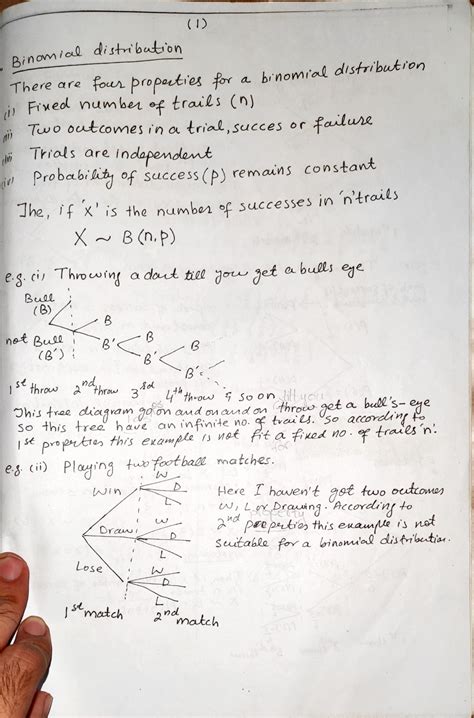 (1)
Binomial distribution
There are four properties for a binomial distribution
(i) Fixed number of trails (n)
(ii) Two outcomes in a trial, succes or failure
(iii) Trials are independent
(iv) Probability of success (p) remains constant
The, if 'x' is the number of successes in 'n' trails
X ~ B(n,p)
e.g. (i) Throwing a dart till you get a bulls eye
Bull
(B)
B
not Bull
(B')
B'
B
B'
B
B'
1st throw 2nd throw 3rd 4th throw & so on
This tree diagram go on and on and on throw till you get a bull's-eye
So this tree have an infinite no. of trails. So according to
1st properties this example is not fit a fixed no. of trails 'n'.
e.g. (ii) Playing two football matches.
Win
W
D
L
Draw
W
D
L
Lose
W
D
L
1st match 2nd match
Here I haven't got two outcomes
W, L or Drawing. According to
2nd properties this example is not
suitable for a binomial distribution.